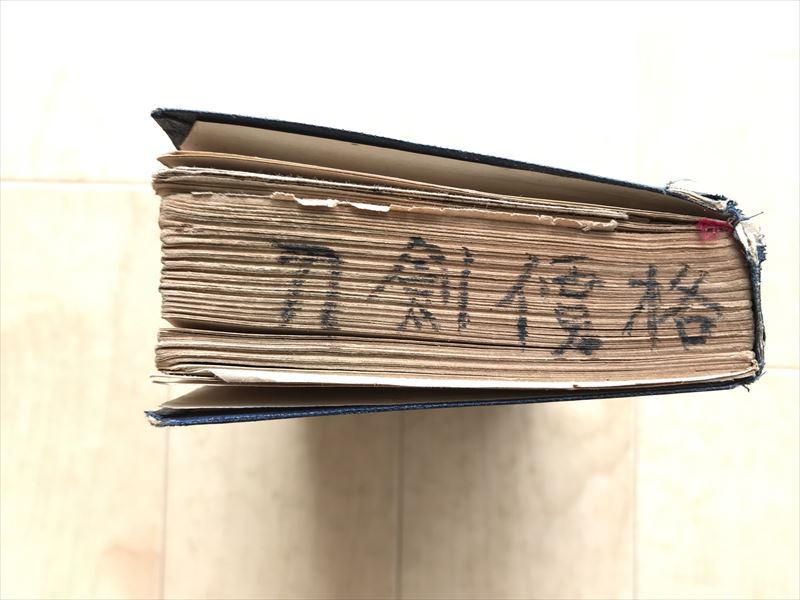 刀劍價格